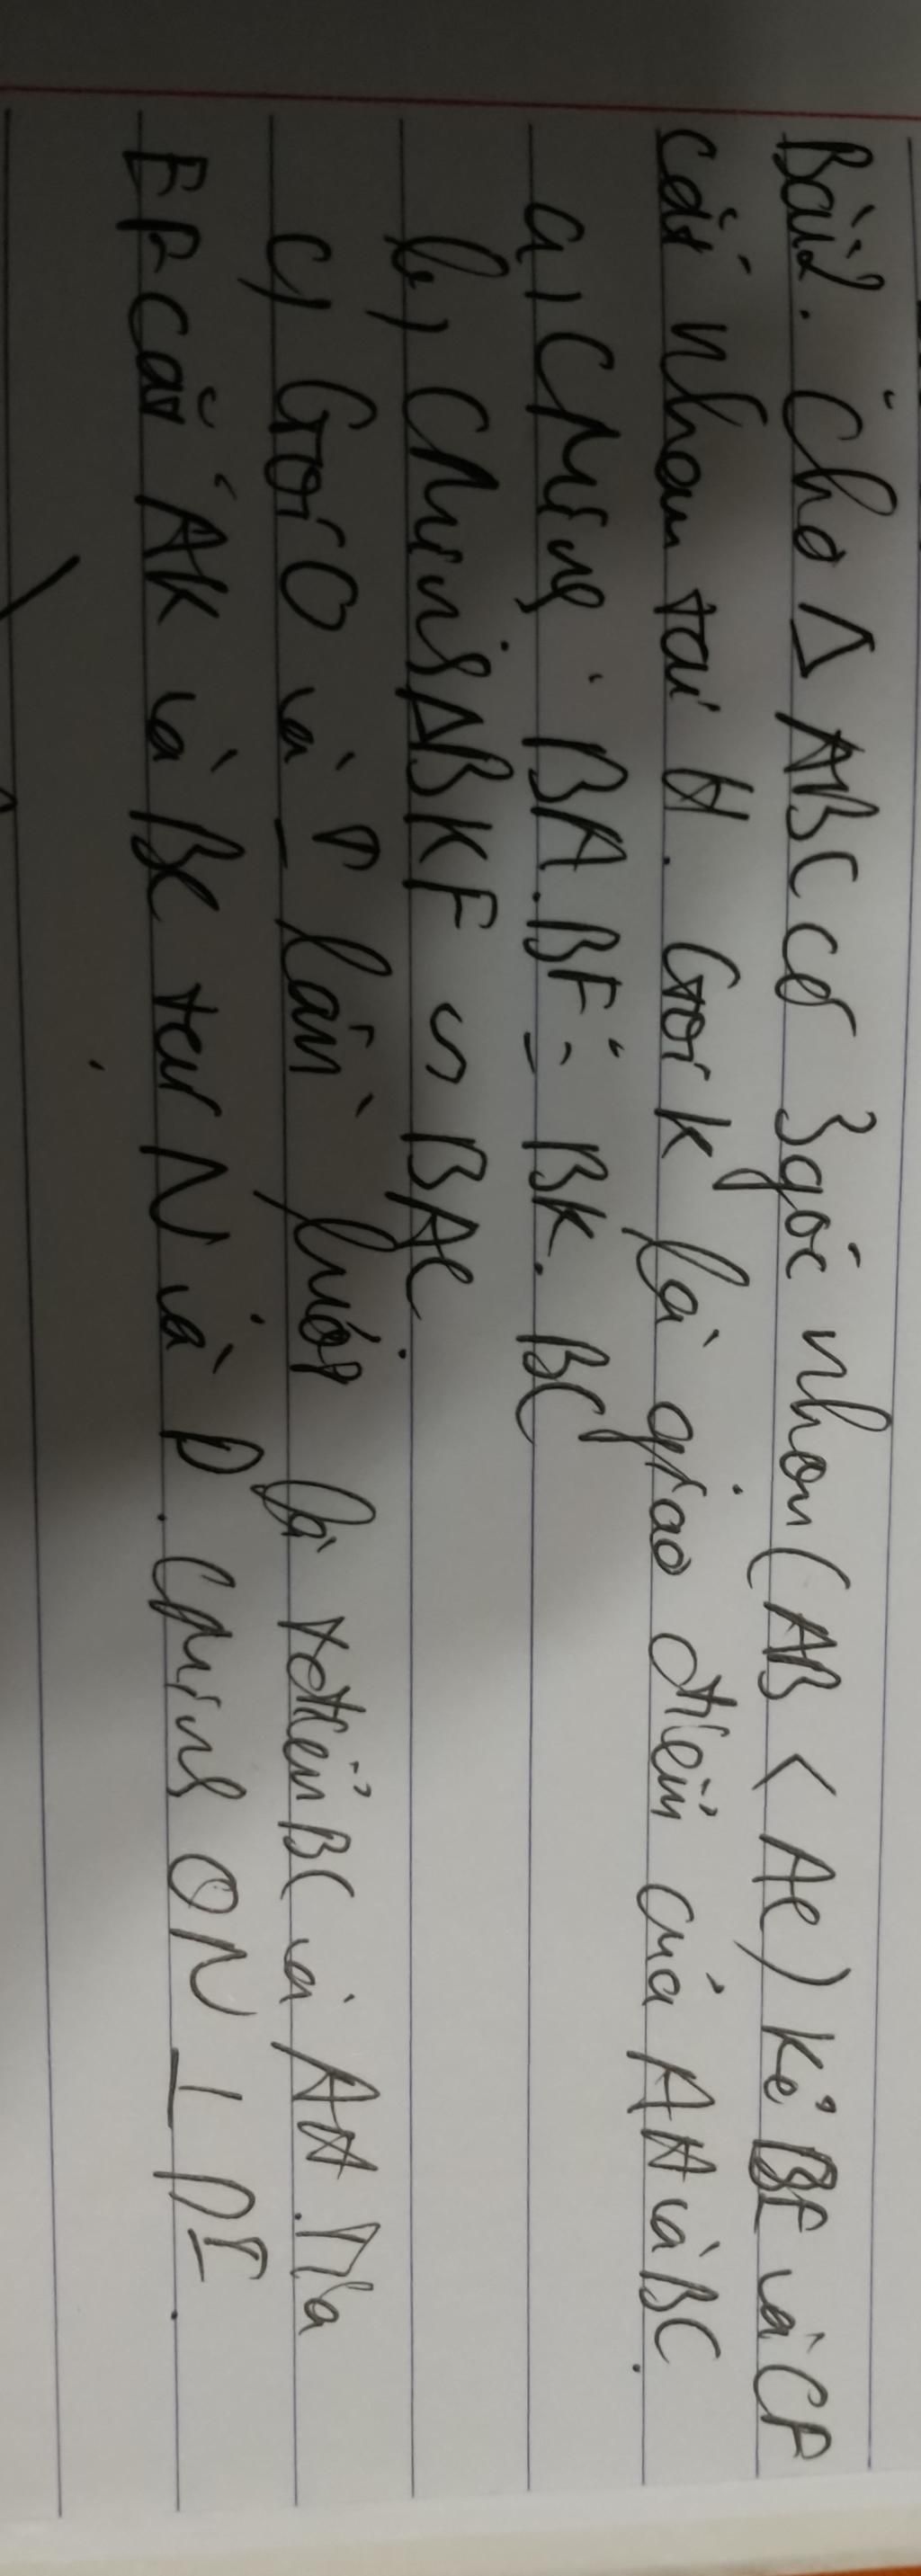 Bài 2. Cho Δ ABC có 3 góc nhọn (AB < AC) Kẻ BE và CF
cắt nhau tại H. Gọi K là giao điểm của AH và BC.
a, CMinh: BA.BF = BK.BC
b, CMinh ΔBKF ∽ BAC
c, Gọi O và I lần lượt là tđiểm BC và AH. Nửa
EF cắt AK và BC tại N và D. CMinh ON ⊥ DI.